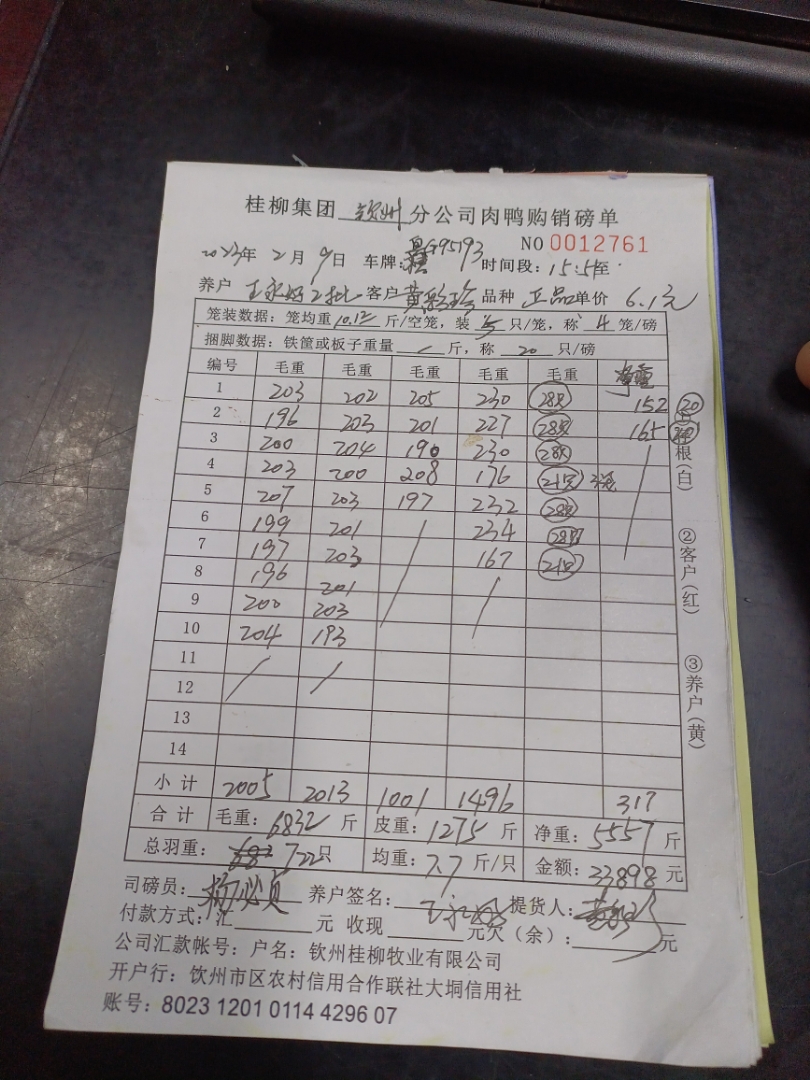 桂柳集团 钦州 分公司肉鸭购销磅单
NO 0012761
2023年 2 月 9 日 车牌: G95193 时间段: 15:54至
养户 王永好2批 客户 黄彩珍 品种 正品 单价 6.1元
笼装数据: 笼均重 10.12 斤/空笼, 装 5 只/笼, 称 4 笼/磅
捆脚数据: 铁筐或板子重量 / 斤, 称 20 只/磅
编号 毛重 毛重 毛重 毛重 毛重 净重
1 203 202 205 230 28只 152 20
2 196 203 201 227 28只 165
3 200 204 190 230 28只
4 203 200 208 176 21只 3笼
5 207 203 197 232 28只
6 199 201 / 234 28只
7 197 203 167 21只
8 196 201 /
9 200 203
10 204 193
11 / /
12
13
14
小计 2005 2013 1001 1496 317
合计 毛重: 6832 斤 皮重: 1275 斤 净重: 5557 斤
总羽重: 722只 均重: 7.7 斤/只 金额: 33898 元
司磅员: 养户签名: 王永好 提货人:
付款方式: 汇 元 收现 元欠(余): 元
公司汇款帐号: 户名: 钦州桂柳牧业有限公司
开户行: 钦州市区农村信用合作联社大垌信用社
账号: 8023 1201 0114 4296 07
根(白)
②客户(红)
③养户(黄)